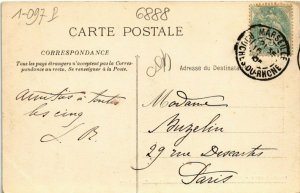 1-097 P
6888
CARTE POSTALE
CORRESPONDANCE
Tous les pays étrangers n'acceptent pas la Corres-
pondance au recto. Se renseigner à la Poste.
Adresse du Destinataire
MARSEILLE
BOUCHES-DU-RHONE
amitiés à toutes
les cinq
Madame
Buzelin
29 rue Descartes
Paris